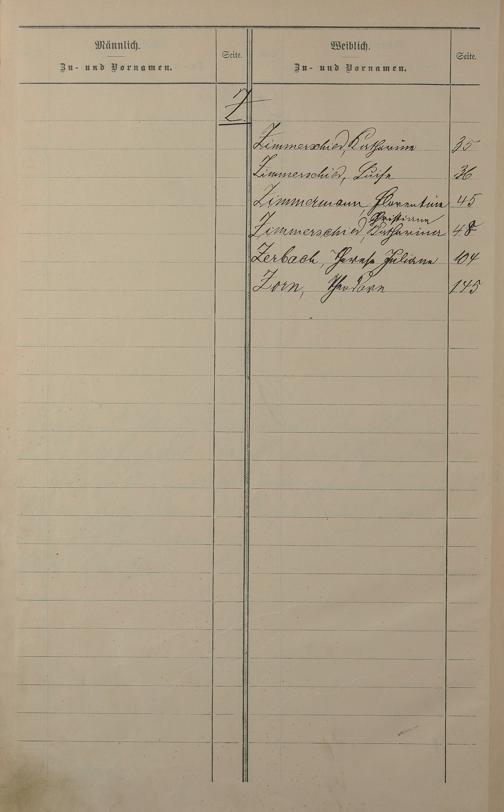 Männlich.
Zu- und Vornamen.
Seite.
Weiblich.
Zu- und Vornamen.
Seite.
Z
Zimmerschied, Katharine 35
Zimmerschied, Luise 36
Zimmermann, Florentine 45
Christiane
Zimmerschied, Katharina 48
Zerbach, Therese Juliane 104
Zorn, Theodore 145